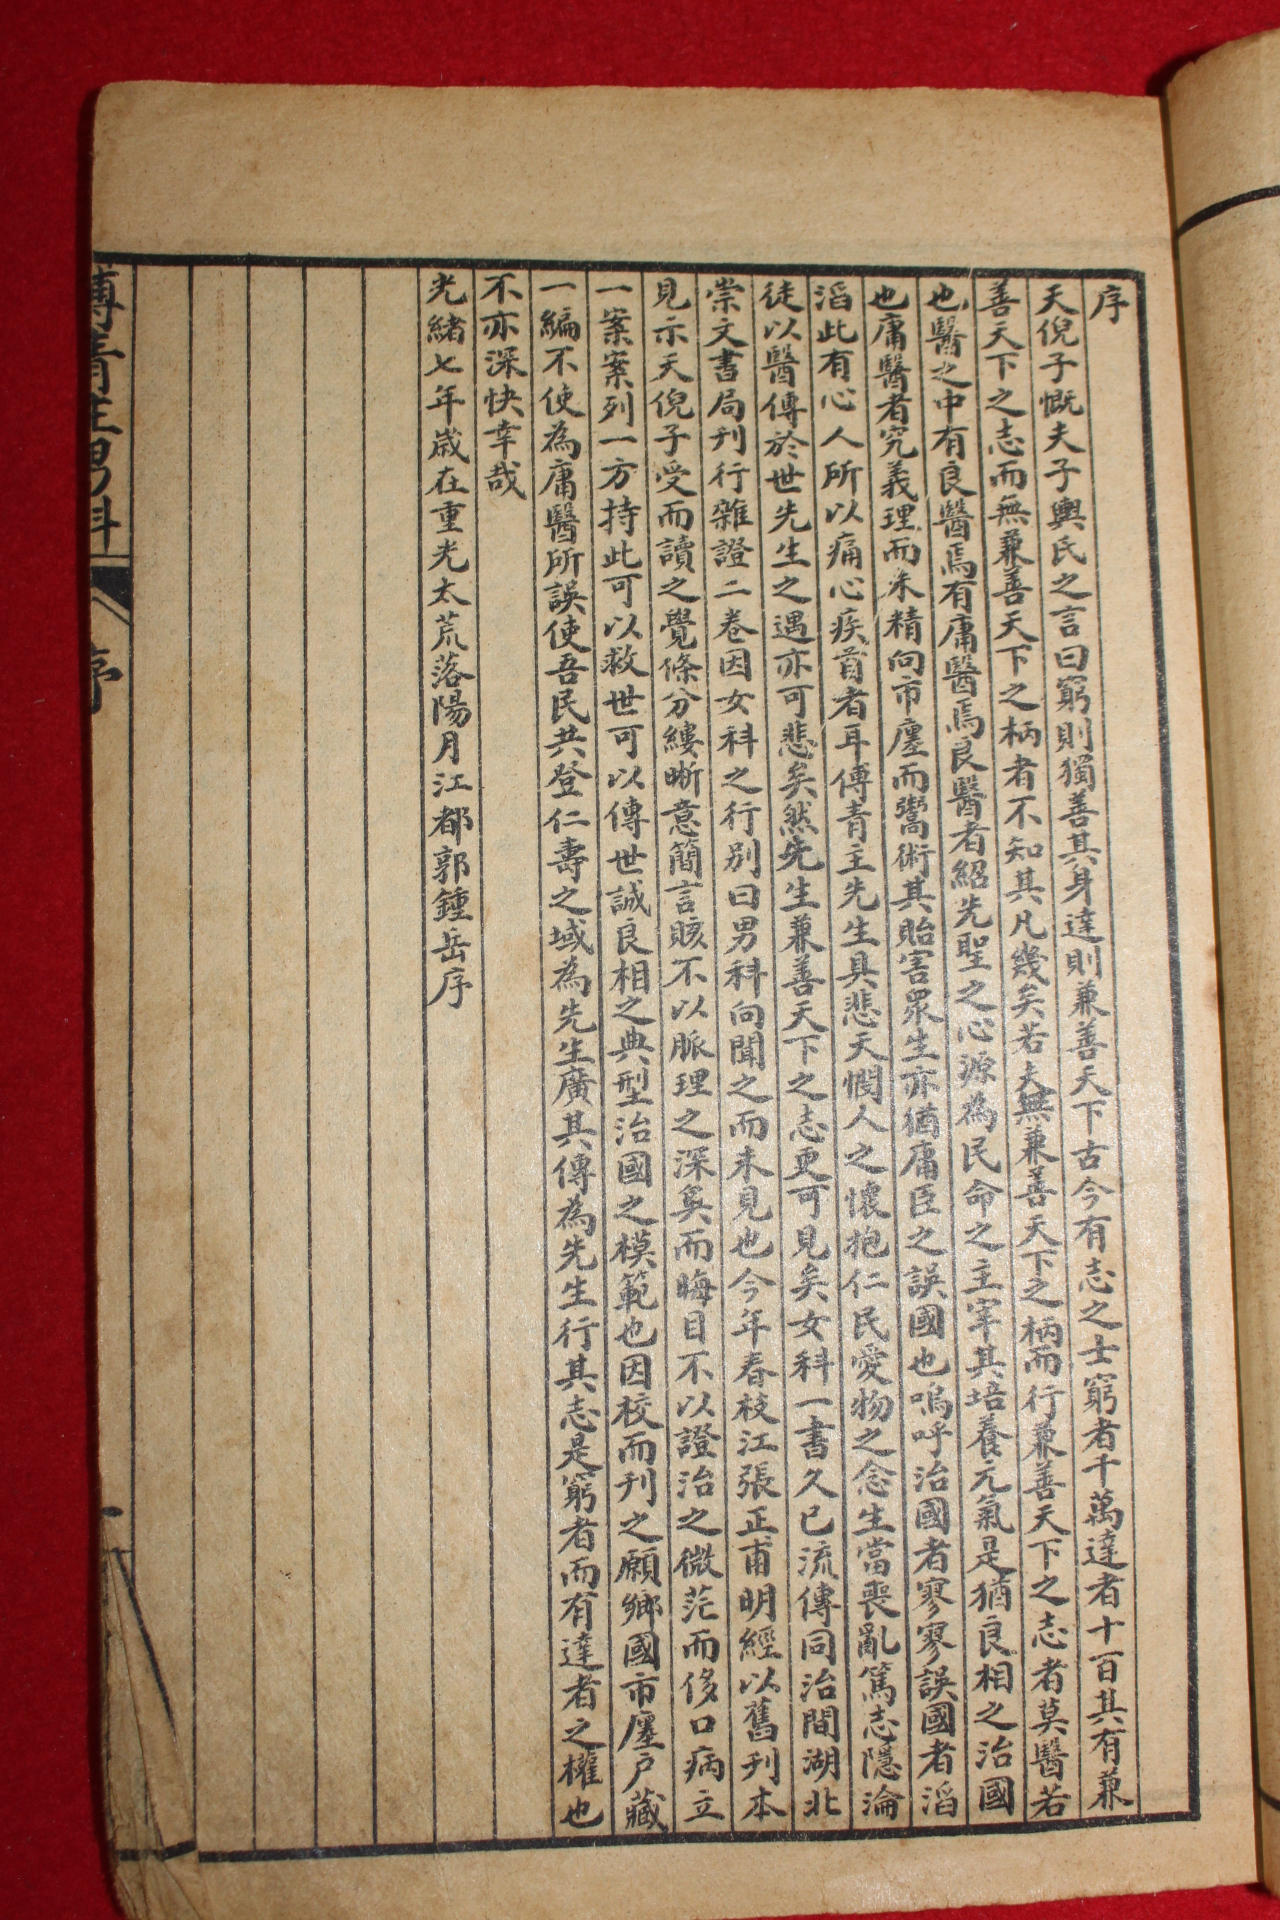 序
天倪子慨夫子輿氏之言曰窮則獨善其身達則兼善天下古今有志之士窮者千萬達者十百其有兼
善天下之志而無兼善天下之柄者不知其凡幾矣若夫無兼善天下之柄而行兼善天下之志者莫醫若
也醫之中有良醫焉有庸醫焉良醫者紹先聖之心源為民命之主宰其培養元氣是猶良相之治國
也庸醫者究義理而未精向市廛而鬻術其貽害眾生亦猶庸臣之誤國也嗚呼治國者寥寥誤國者滔
滔此有心人所以痛心疾首者耳傅青主先生具悲天憫人之懷抱仁民愛物之念生當喪亂篤志隱淪
徒以醫傳於世先生之遇亦可悲矣然先生兼善天下之志更可見矣女科一書久已流傳同治間湖北
崇文書局刊行雜證二卷因女科之行別曰男科向聞之而未見也今年春枝江張正甫明經以舊刊本
見示天倪子受而讀之覺條分縷晰意簡言賅不以脈理之深奧而晦目不以證治之微茫而侈口病立
一案案列一方持此可以救世可以傳世誠良相之典型治國之模範也因校而刊之願鄉國市廛戶藏
一編不使為庸醫所誤使吾民共登仁壽之域為先生廣其傳為先生行其志是窮者而有達者之權也
不亦深快幸哉
光緒七年歲在重光太荒落陽月江都郭鍾岳序
傅青主男科
序